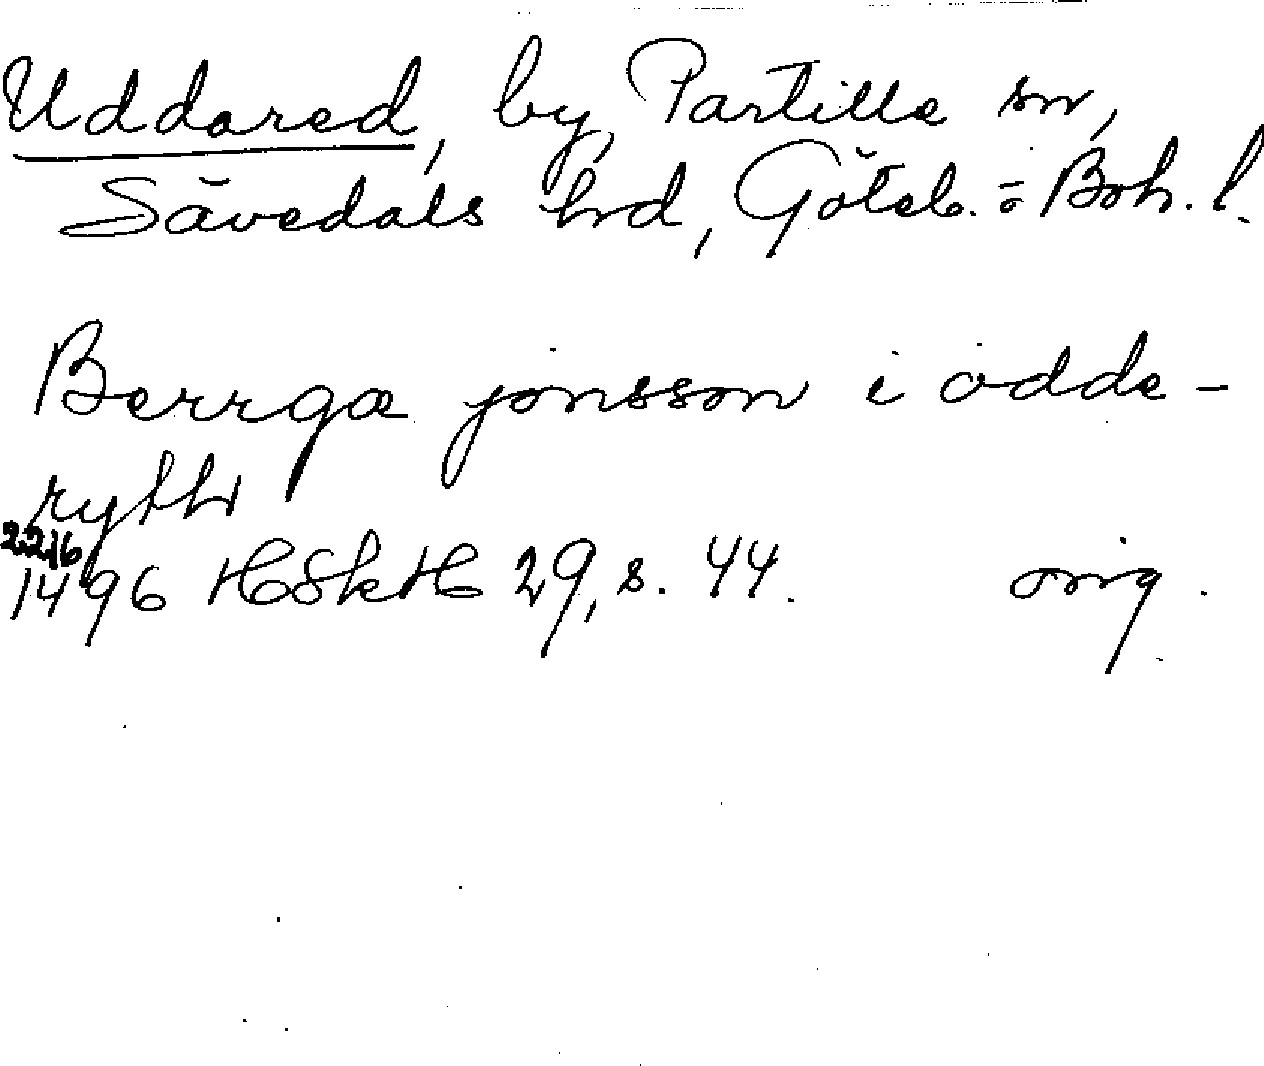 Uddared, by, Partille sn,
Sävedals hd, Göteb. o Boh. l.
Berrgæ jonsson i odde-
rythr
22/6
1496 HSkH 29, s. 44. orig.